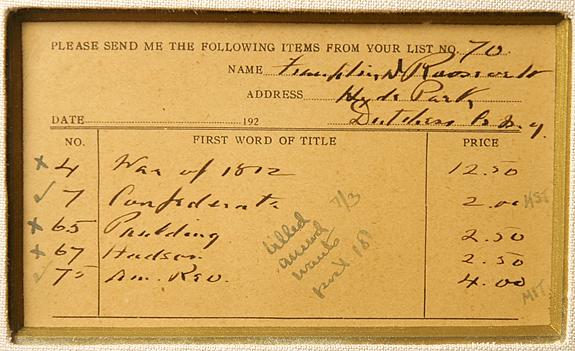 PLEASE SEND ME THE FOLLOWING ITEMS FROM YOUR LIST NO. 70
NAME Franklin D Roosevelt
ADDRESS Hyde Park
DATE 192 Dutchess Co N.Y.
NO. FIRST WORD OF TITLE PRICE
x 4 War of 1812 12.50
✓ 7 Confederate 7/3 2.00
x 65 Paulding 2.50
x 67 Hudson 2.50
✓ 75 Am. Rev. 4.00
billed
wants